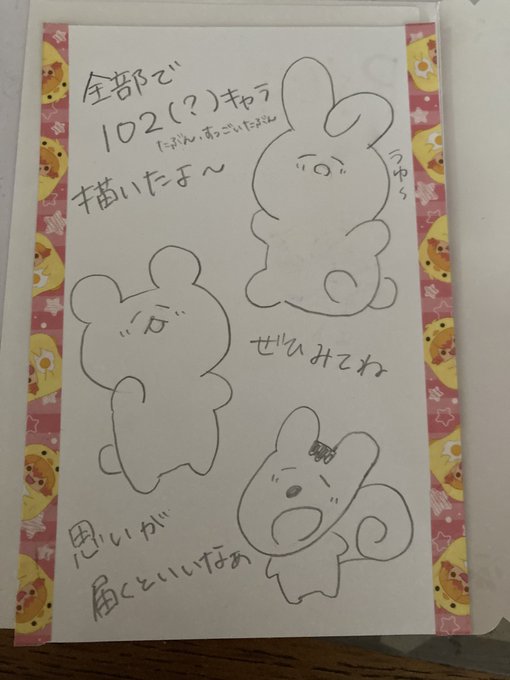 全部で
102(?)キャラ
たぶん、すっごいたぶん
描いたよ〜
うゆ〜
ぜひみてね
思いが
届くといいなぁ